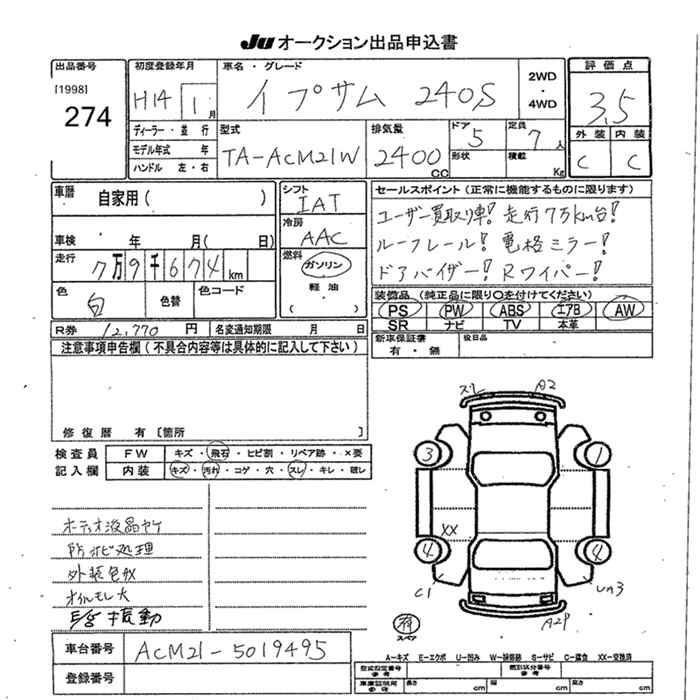 Ju オークション出品申込書
出品番号 初度登録年月 車名・グレード 2WD・4WD 評価点
[1998] 274 H14 1月 イプサム 240S 3.5
ディーラー・並行 モデル年式 年 ハンドル 左・右
型式 TA-ACM21W 排気量 2400 CC ドア 5 形状 定員 7人 積載 Kg
外装 内装
C C
車歴 自家用( )
シフト IAT
冷房 AAC
セールスポイント(正常に機能するものに限ります)
ユーザー買取り車! 走行7万km台!
ルーフレール! 電格ミラー!
ドアバイザー! Rワイパー!
車検 年 月( 日)
走行 7万9千674km
燃料 ガソリン 軽油 ( )
色 白 色替 色コード
装備品(純正品に限り○を付けてください)
PS PW ABS エアB AW
SR ナビ TV 本革
R券 12,770円 名変通知期限 月 日
新車保証書 有・無 後日品
注意事項申告欄(不具合内容等は具体的に記入して下さい)
修復歴 有〔箇所 〕
検査員記入欄 FW キズ・飛石・ヒビ割・リペア跡・×要
内装 キズ・汚れ・コゲ・穴・スレ・キレ・破レ
スレ A2
3 1
XX
4 4
C1
A2P
スペア
オーディオ液晶ヤケ
防サビ処理
外装色アセ
オイルモレ大
E/G振動
車台番号 ACM21-5019495
登録番号
A-キズ E-エクボ U-凹み W-補修跡 S-サビ C-腐食 XX-交換済
型式指定番号 参考 類別区分番号
車庫証明用 参考 長さ cm 幅 cm 高さ cm